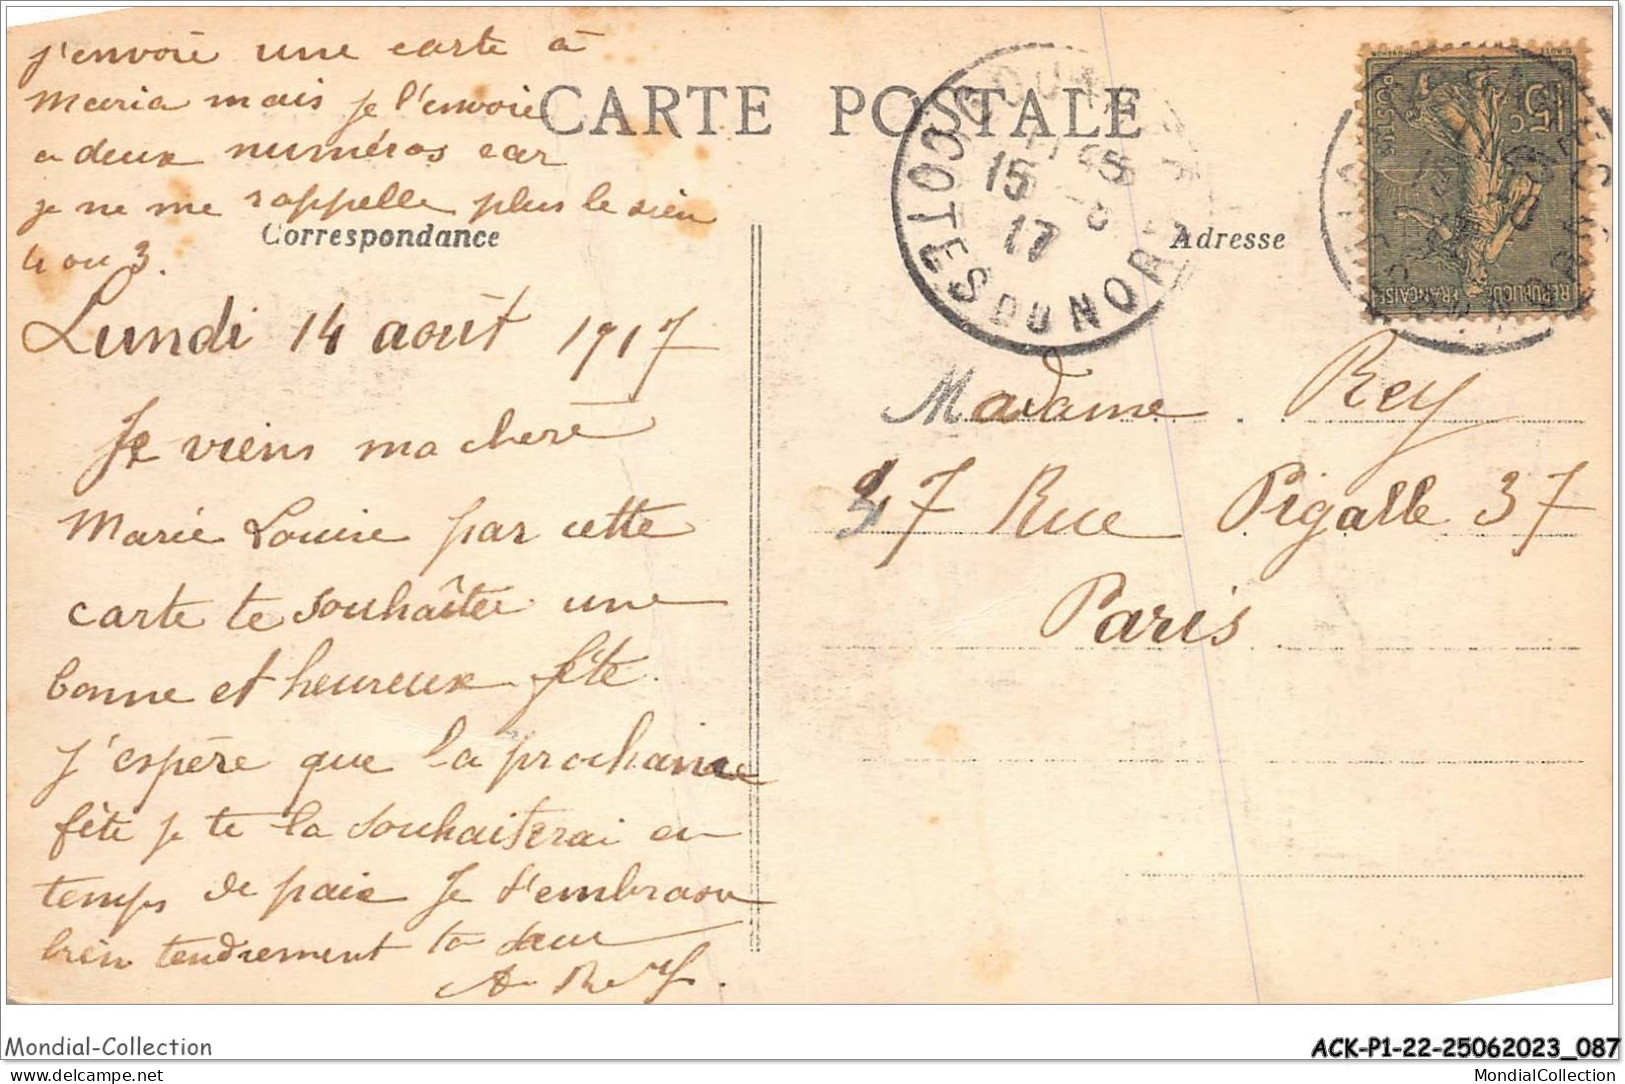 j'envoie une carte à
Maria mais je l'envoie
a deux numéros car
je ne me rappelle plus le sien
4 ou 3.
CARTE POSTALE
Correspondance
Adresse
Lundi 14 août 1917
Je viens ma chere
Marie Louise par cette
carte te souhaiter une
bonne et heureuse fête.
J'espère que la prochaine
fête je te la souhaiterai en
temps de paix Je t'embrasse
bien tendrement ta sœur
A. Rey.
COTES DU NORD
15
17
15c
POSTES
REPUBLIQUE FRANÇAISE
Madame Rey
37 Rue Pigalle 37
Paris
Mondial-Collection
ACK-P1-22-25062023_087
delcampe.net
MondialCollection